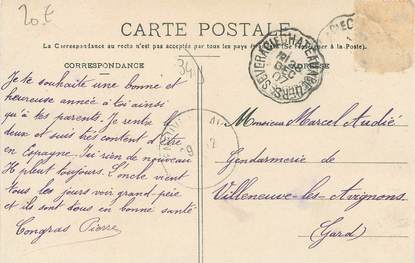 20.E
CARTE POSTALE
La Correspondance au recto n'est pas acceptée par tous les pays (Se renseigner à la Poste).
CORRESPONDANCE
Je te souhaite une bonne et
heureuse année à toi ainsi
qu'à tes parents. Je rentre le
deux et suis très content d'être
en Espagne. Tu rien de nouveau
Il pleut toujours. L'oncle vient
tous les jours voir grand-père
et ils sont tous en bonne santé
Congras Pierre
Monsieur Marcel Audié
Gendarmerie de
Villeneuve-les-Avignons
Gard